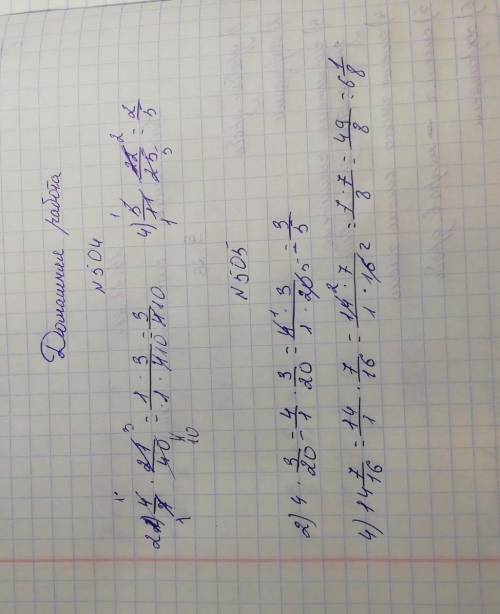 Домашняя работа
N504
2) 4/7 · 21/40 = 1 · 3/1 · 10 = 3/10 4) 5/11 · 22/25 = 2/5
N505
2) 4 · 3/20 = 4/1 · 3/20 = 4 · 3/1 · 20 = 3/5
4) 14 7/16 = 14/1 · 7/16 = 14 · 7/1 · 16 = 7 · 7/8 = 49/8 = 6 1/8